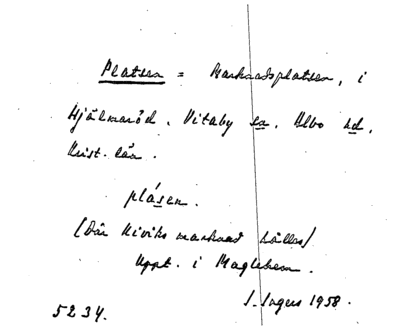 Platsen = Marknadsplatsen, i
Hjälmaröd, Vitaby sn. Albo hd,
Krist. län.
plásen.
(Där Kiviks marknad hålles)
Uppt. i Maglehem.
S. Ingers 1958.
5234.